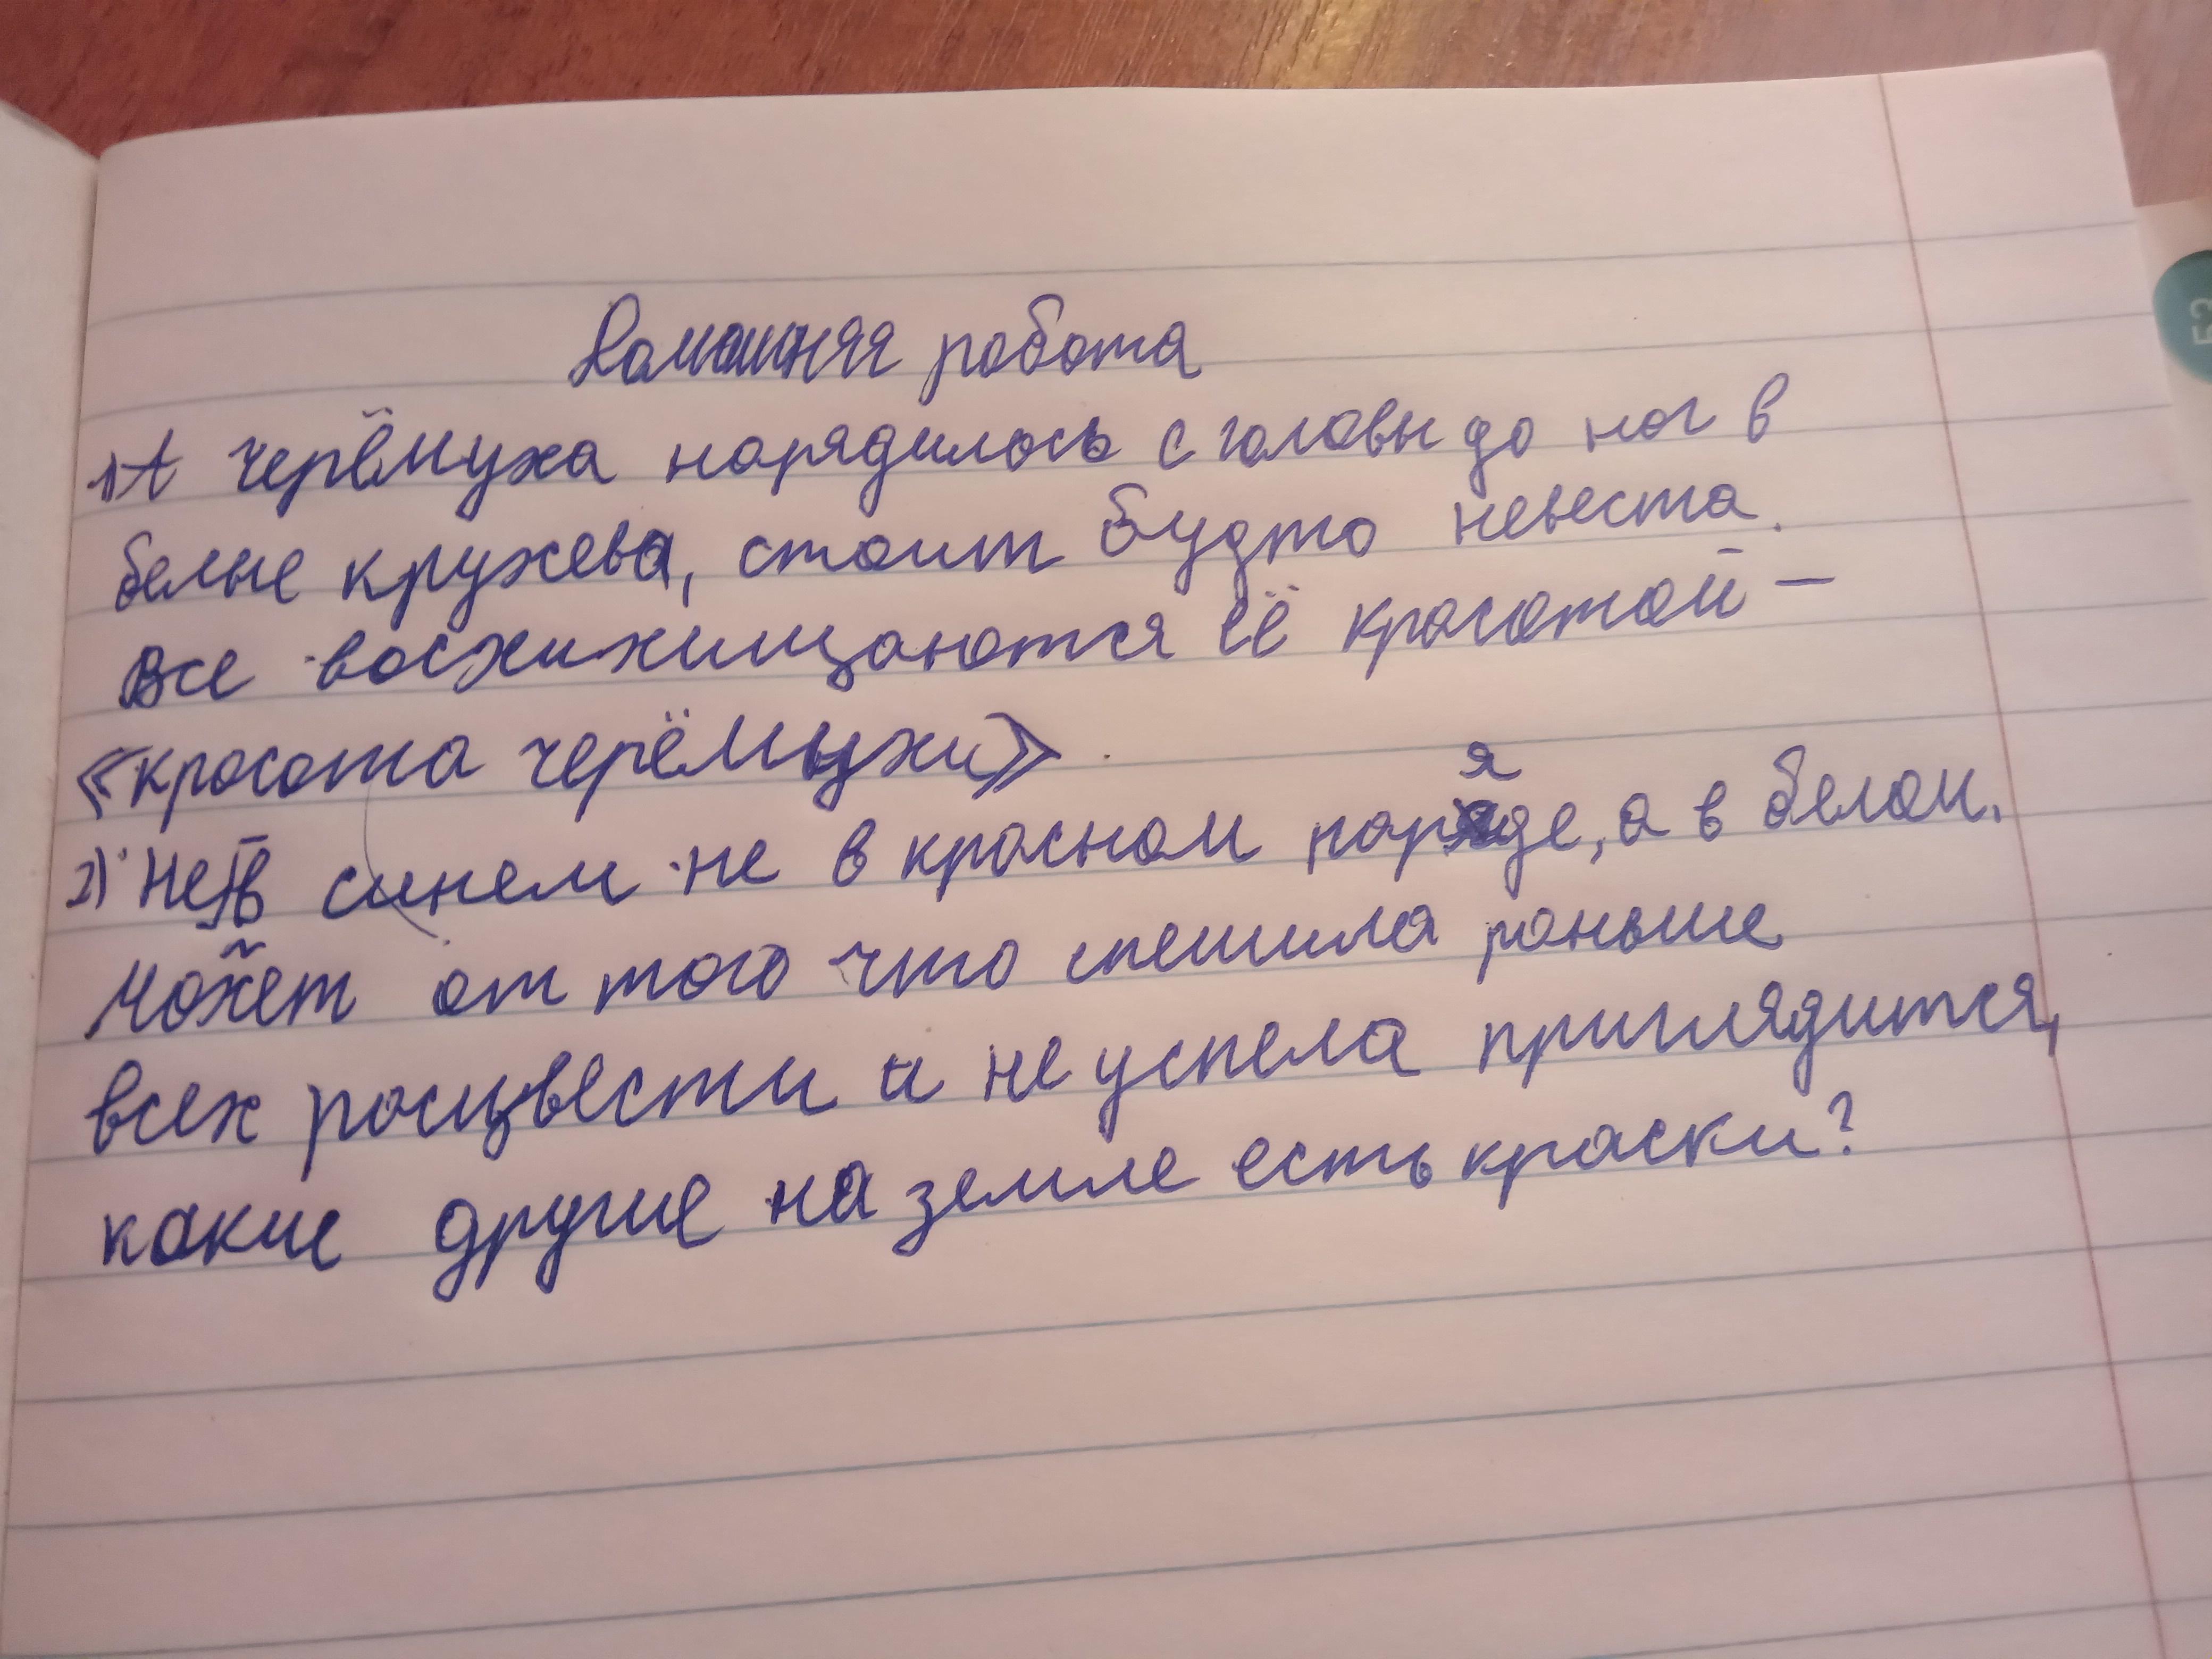 Домашняя работа
1) А черёмуха нарядилось с головы до ног в
белые кружева, стоит будто невеста.
Все восхихищаются её красотой –
«красота черёмухи»
2) Не в синем не в красном наряде, а в белом.
Может от того что спешила раньше
всех росцвести и не успела приглядится,
какие другие на земле есть краски?